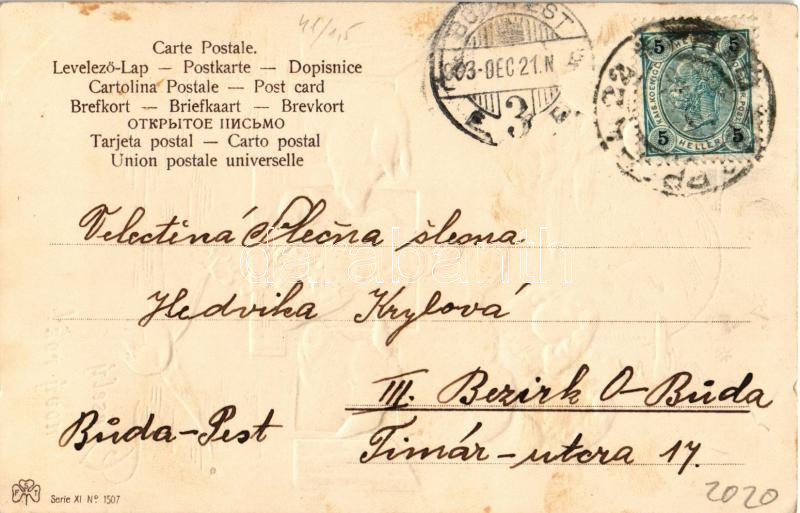 41/1,5
Carte Postale.
Levelező-Lap — Postkarte — Dopisnice
Cartolina Postale — Post card
Brefkort — Briefkaart — Brevkort
ОТКРЫТОЕ ПИСЬМО
Tarjeta postal — Carto postal
Union postale universelle
BUDAPEST
03-DEC 21.N
3
5 5
5 HELLER 5
Velectěná Slečna slesna
Hedvika Krylová
III. Bezirk O-Buda
Buda-Pest
Timár-utcra 17.
darabanth
Serie XI Nº 1507
2020